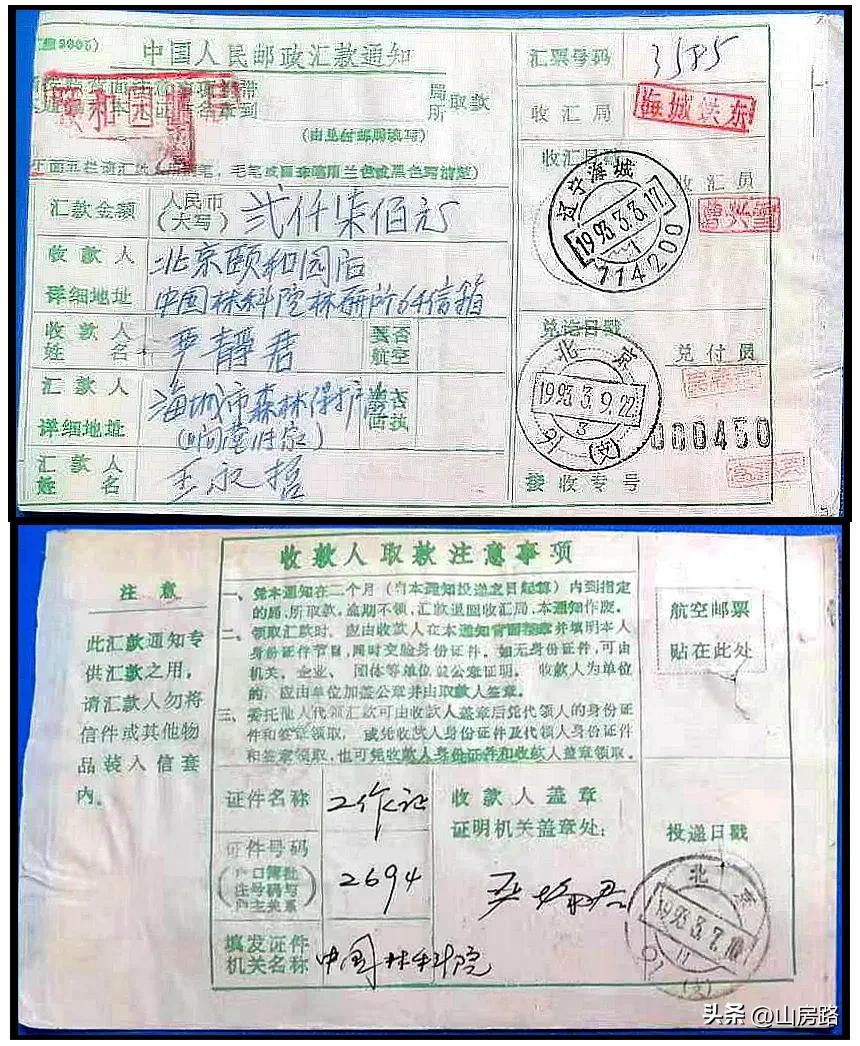 中国人民邮政汇款通知
取款
(由兑付邮局填写)
汇款金额 人民币(大写) 贰仟柒佰元
收款人详细地址 北京颐和园后
中国林科院林研所64信箱
收款人姓名 严静君
要否航空
汇款人详细地址 海城市森林保护
汇款人姓名 王永
汇票号码 3585
收汇局 海城铁东
收汇局戳
收汇员
辽宁海城
1993.3.3.17
114200
兑讫日戳
兑付员
北京
1993.3.9.22
3
91
(支)
000450
接收专号
收款人取款注意事项
注意
此汇款通知专
供汇款之用,
请汇款人勿将
信件或其他物
品装入信套
内。
一、凭本通知在二个月(自本通知投递之日起算)内到指定
的局、所取款,逾期不领,汇款退回收汇局,本通知作废。
二、领取汇款时,应由收款人在本通知背面签章并填明本人
身份证件节目,同时交验身份证件。如无身份证件,可由
机关、企业、团体等单位加盖公章证明。收款人为单位
的,应由单位加盖公章并由取款人签章。
三、委托他人代领汇款可由收款人盖章后凭代领人的身份证
件和签章领取,或凭收款人身份证件及代领人身份证件
和签章领取,也可凭收款人身份证件和收款人盖章领取。
航空邮票
贴在此处
证件名称 工作证
证件号码
(户口簿批
注号码与
户主关系)
2694
填发证件
机关名称 中国林科院
收款人盖章
证明机关盖章处:
严静君
投递日戳
北京
1993.3.7.10
11
91
(支)
头条 @山房路